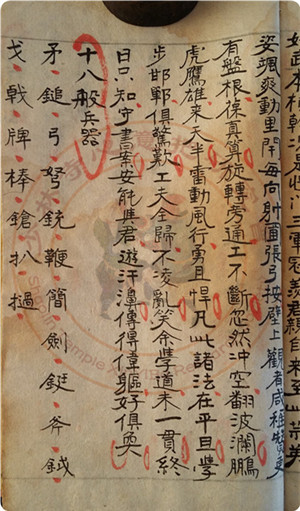 姿颯爽動里閈每向射圃張弓按壁上觀者咸稱贊更
有盤根葆真算旋轉旁通工不斷忽然冲空翻波瀾鵬
虎鷹雄來天半雷動風行寓且悍凡此諸法在平旦學
步邯鄲俱驚歎工夫全歸不凌亂笑余學道未一貫終
日只知守書案安能隻君遊汗漫傳得偉軀好俱奐
十八般兵器
矛鎚弓弩銃鞭簡劍鋌斧鉞
戈戟牌棒鎗扒撾